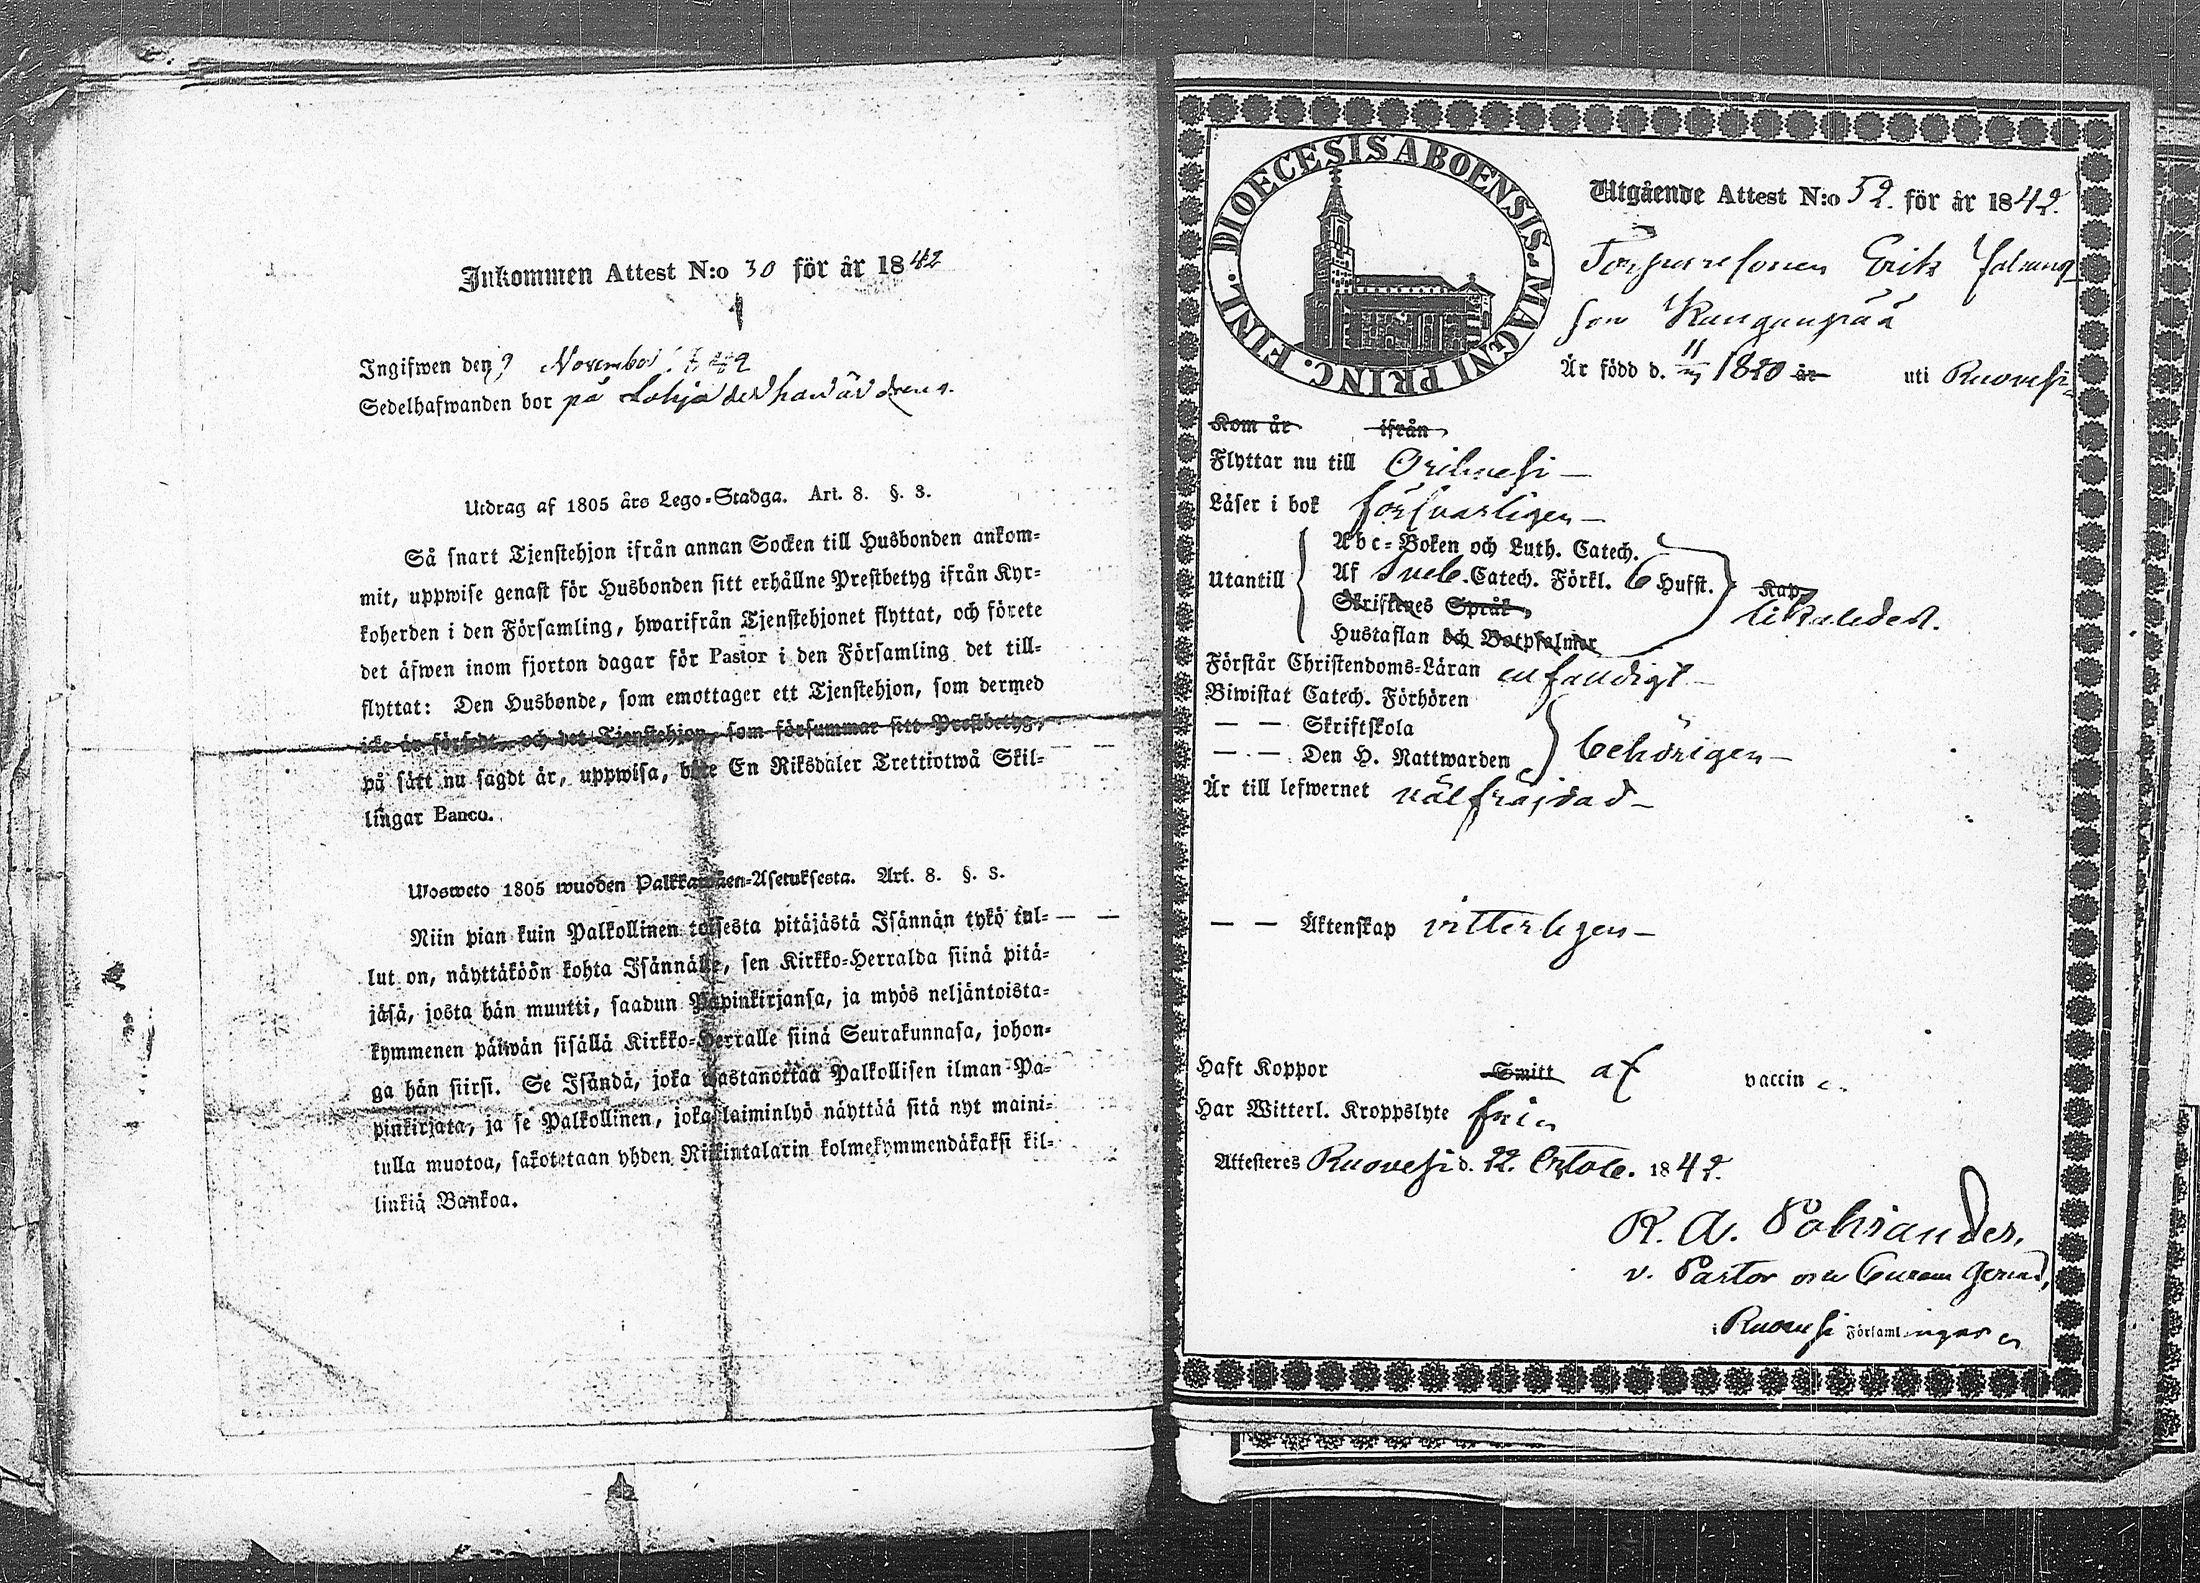 Inkommen Attest N:o 30 för år 1842
Ingifwen den 9 November 1842
Sedelhafwanden bor på Lohja der han är dreng.
Utdrag af 1805 års Lego-Stadga. Art. 8. §. 3.
Så snart Tjenstehjon ifrån annan Socken till Husbonden ankom-
mit, uppwise genast för Husbonden sitt erhållne Prestbetyg ifrån Kyr-
koherden i den Församling, hwarifrån Tjenstehjonet flyttat, och förete
det äfwen inom fjorton dagar för Pastor i den Församling det till-
flyttat: Den Husbonde, som emottager ett Tjenstehjon, som dermed
icke är försedt, och det Tjenstehjon, som försummar sitt Prestbetyg,
på sätt nu sagdt är, uppwisa, böte En Riksdaler Trettiotwå Skil-
lingar Banco.
Ulosweto 1805 wuoden Palkkawäen-Asetuksesta. Art. 8. §. 3.
Niin pian kuin Palkollinen toisesta pitäjästä Isännän tykö tul-
lut on, näyttäköön kohta Isännälle, sen Kirkko-Herralda siinä pitä-
jäsä, josta hän muutti, saadun Papinkirjansa, ja myös neljäntoista-
kymmenen päiwän sisällä Kirkko-Herralle siinä Seurakunnasa, johon-
ga hän siirsi. Se Isändä, joka wastanottaa Palkollisen ilman Pa-
pinkirjata, ja se Palkollinen, joka laiminlyö näyttää sitä nyt maini-
tulla muotoa, sakotetaan yhden Riikintalarin kolmekymmendäkaksi kil-
linkiä Bankoa.
DIOECESIS ABOENSIS MAGNI PRINC. FINL.
Utgående Attest N:o 52. för år 1842.
Torparesonen Erik Johans
son Kangaspää
Är född d. 11/ 1820 år uti Ruovesi
Kom år ifrån
Flyttar nu till Orihvesi
Läser i bok försvarligen
Utantill
Abc-Boken och Luth. Catech.
Af Sveb. Catech. Förkl. 6 Hufst. Kap.
Skriftenes Språk likaledes.
Hustaflan och Botpsalmer
Förstår Christendoms-Läran enfaldigt
Biwistat Catech. Förhören
— — Skriftskola
— — Den H. Nattwarden behörigen
Är till lefwernet välfräjdad
— — Äktenskap vitterligen
Haft Koppor Smitt af vaccin
Har Witterl. Kroppslyte fri
Attesteres Ruovesi d. 22. Octob. 1842.
v. Pastor
i Ruovesi Församl